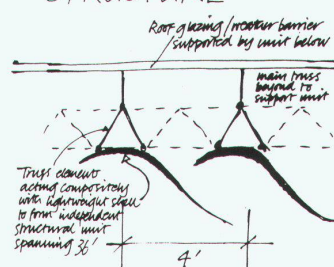 STRUCTURE
Roof glazing/weather barrier
supported by unit below
main truss
beyond to
support unit
Truss element
acting compositely
with lightweight shell
to form independent
structural unit
spanning 36'
4'